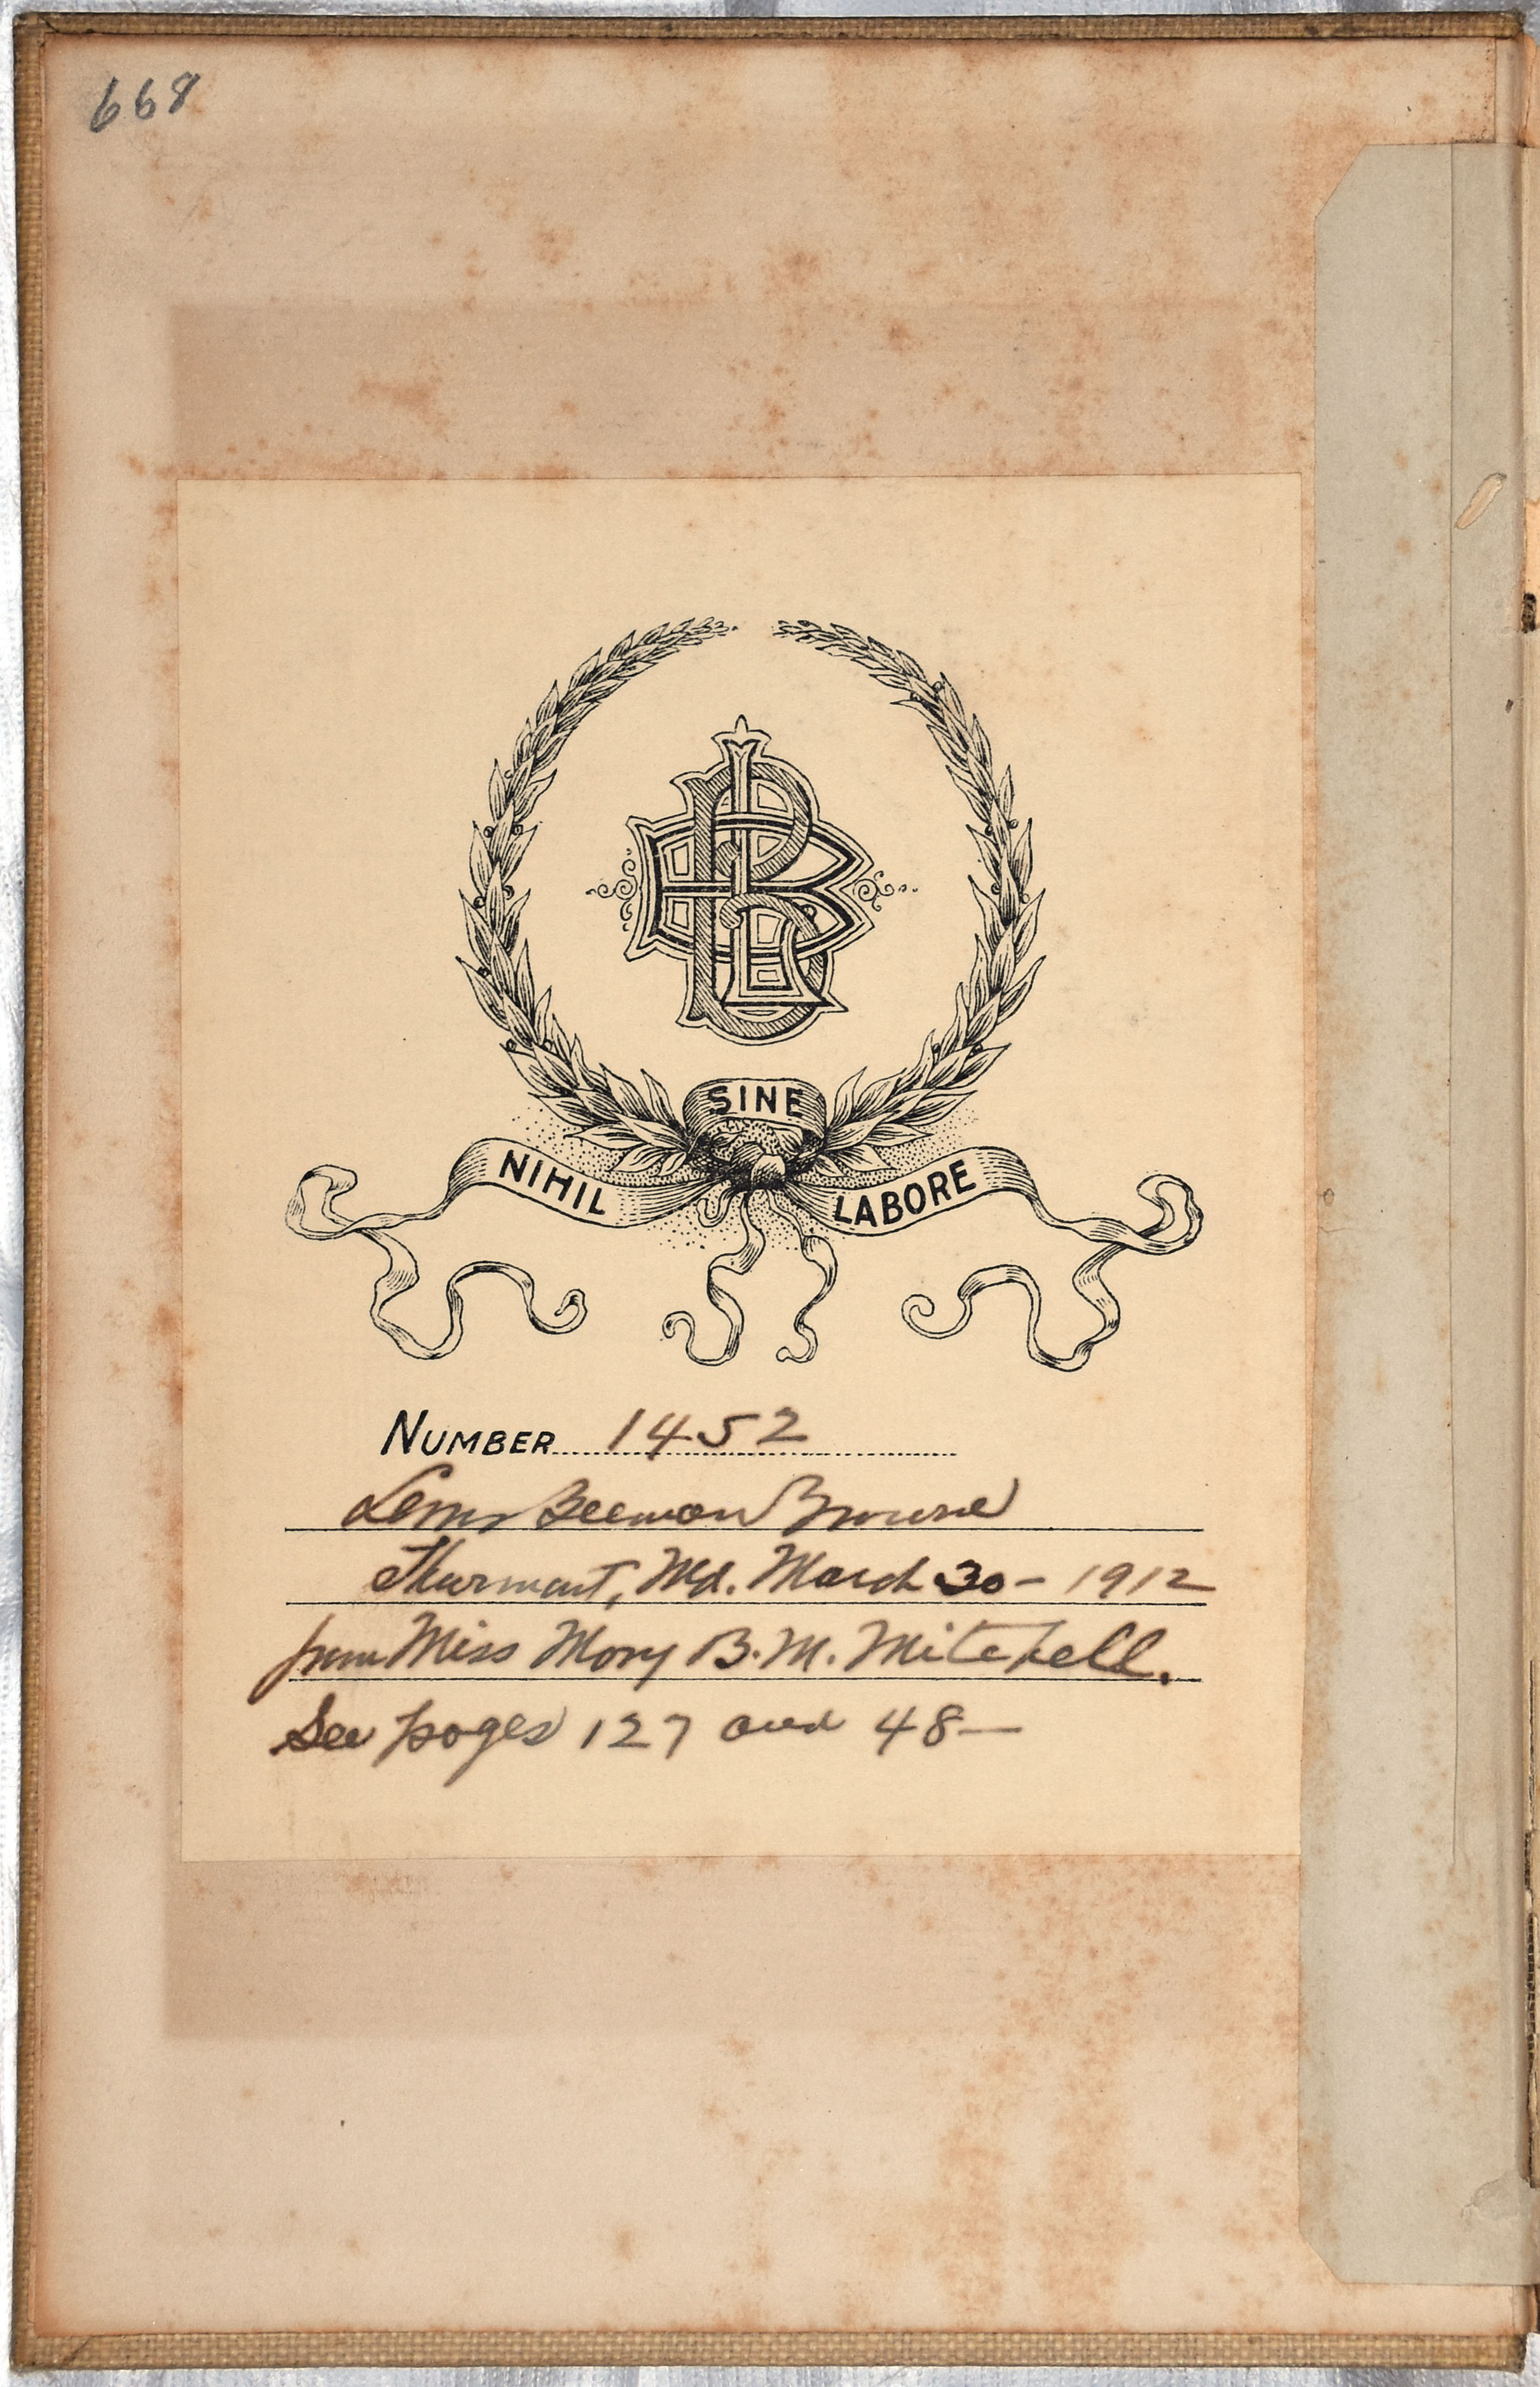 668
SINE
NIHIL LABORE
NUMBER 1452
Lewis Beeman Browne
Thurmont, Md. March 30 - 1912
from Miss Mary B. M. Mitchell.
See pages 127 and 48 —